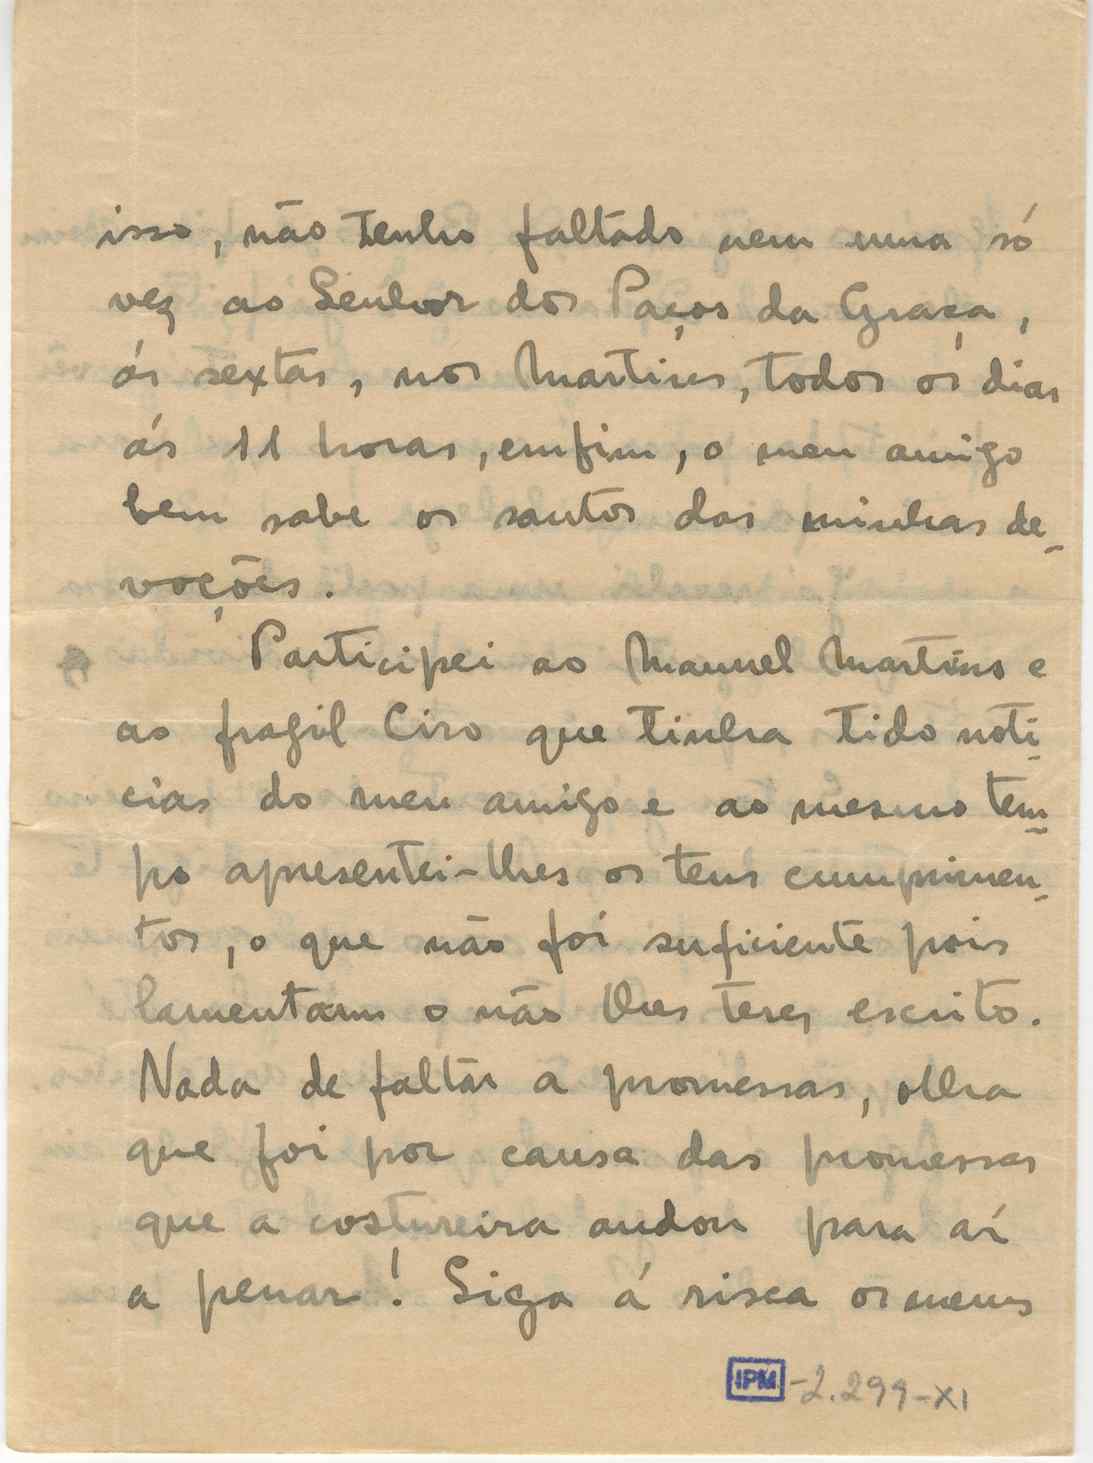 isso, não tenho faltado nem uma só
vez ao Senhor dos Paços da Graça,
ás sextas, nos Martires, todos os dias
ás 11 horas, emfim, o meu amigo
bem sabe os santos das minhas de-
voções.
Participei ao Manuel Martins e
ao fragil Ciro que tinha tido noti-
cias do meu amigo e ao mesmo tem-
po apresentei-lhes os teus cumprimen-
tos, o que não foi suficiente pois
lamentam o não lhes teres escrito.
Nada de faltar a promessas, olha
que foi por causa das promessas
que a costureira andou para aí
a penar! Siga á risca os meus
IPM -2.299-XI